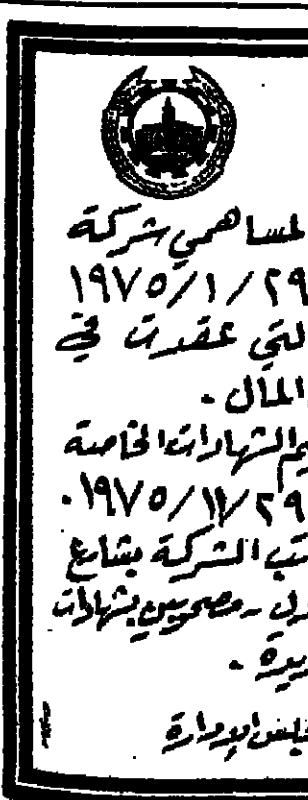 لمساهمي شركة
١٩٧٥/١/٢٩
لتي عقدت في
المال .
يم الشهادات الخاصة
١٩٧٥/١١/٢٩ .
تب الشركة بشارع
دل - مصحوبين بشهادات
ديدة .
جلس الإدارة